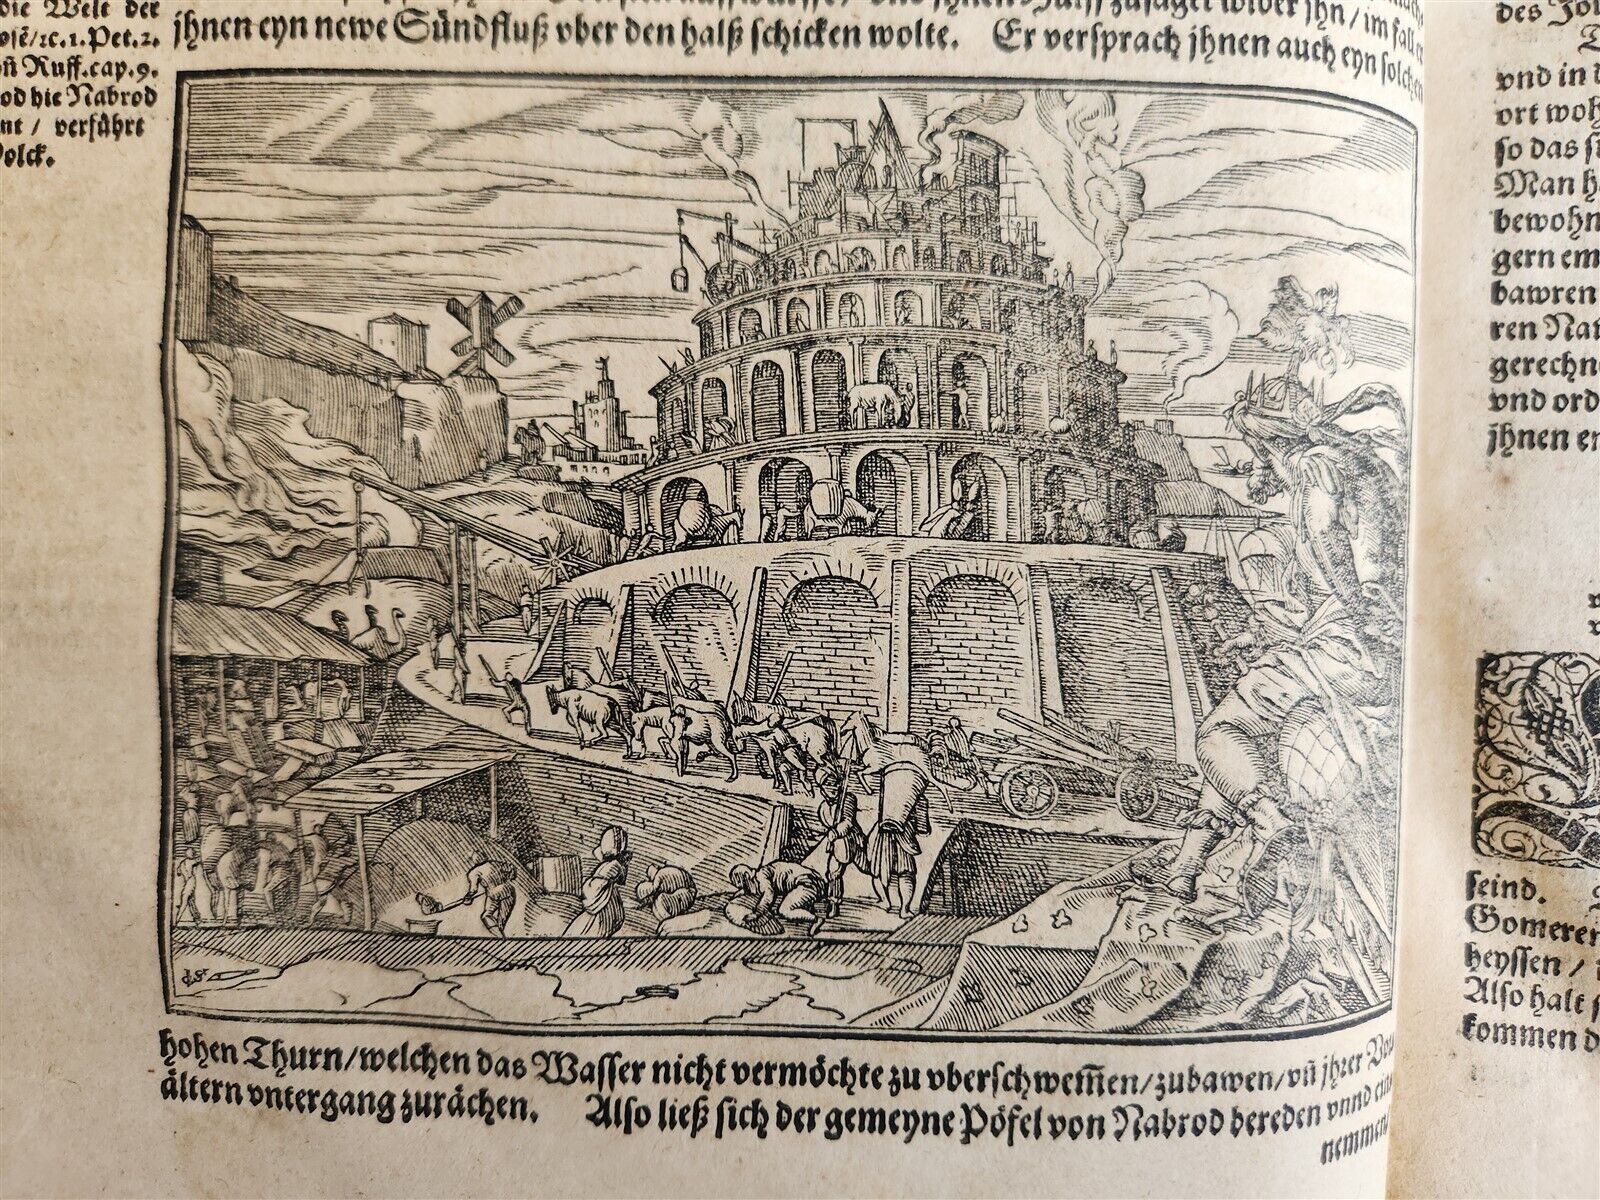 die Welt der
osē/ꝛc.1.Pet.2.
vñ Ruff.cap.9.
od die Nabrod
nt / verführt
Volck.
jhnen eyn newe Sündfluß vber den halß schicken wolte. Er versprach jhnen auch eyn solchen
hohen Thurn/welchen das Wasser nicht vermöchte zu vberschwem̄en/zubawen/vñ jhrer Vor
ältern vntergang zurächen. Also ließ sich der gemeyne Pöfel von Nabrod bereden vnnd ein
nemmen/
des Jo
vnd in d
ort woh
so das s
Man h
bewohn
gern em
bawren
ren Na
gerechn
vnd ord
jhnen er
seind.
Gomeren
heyssen /
Also halt s
kommen d